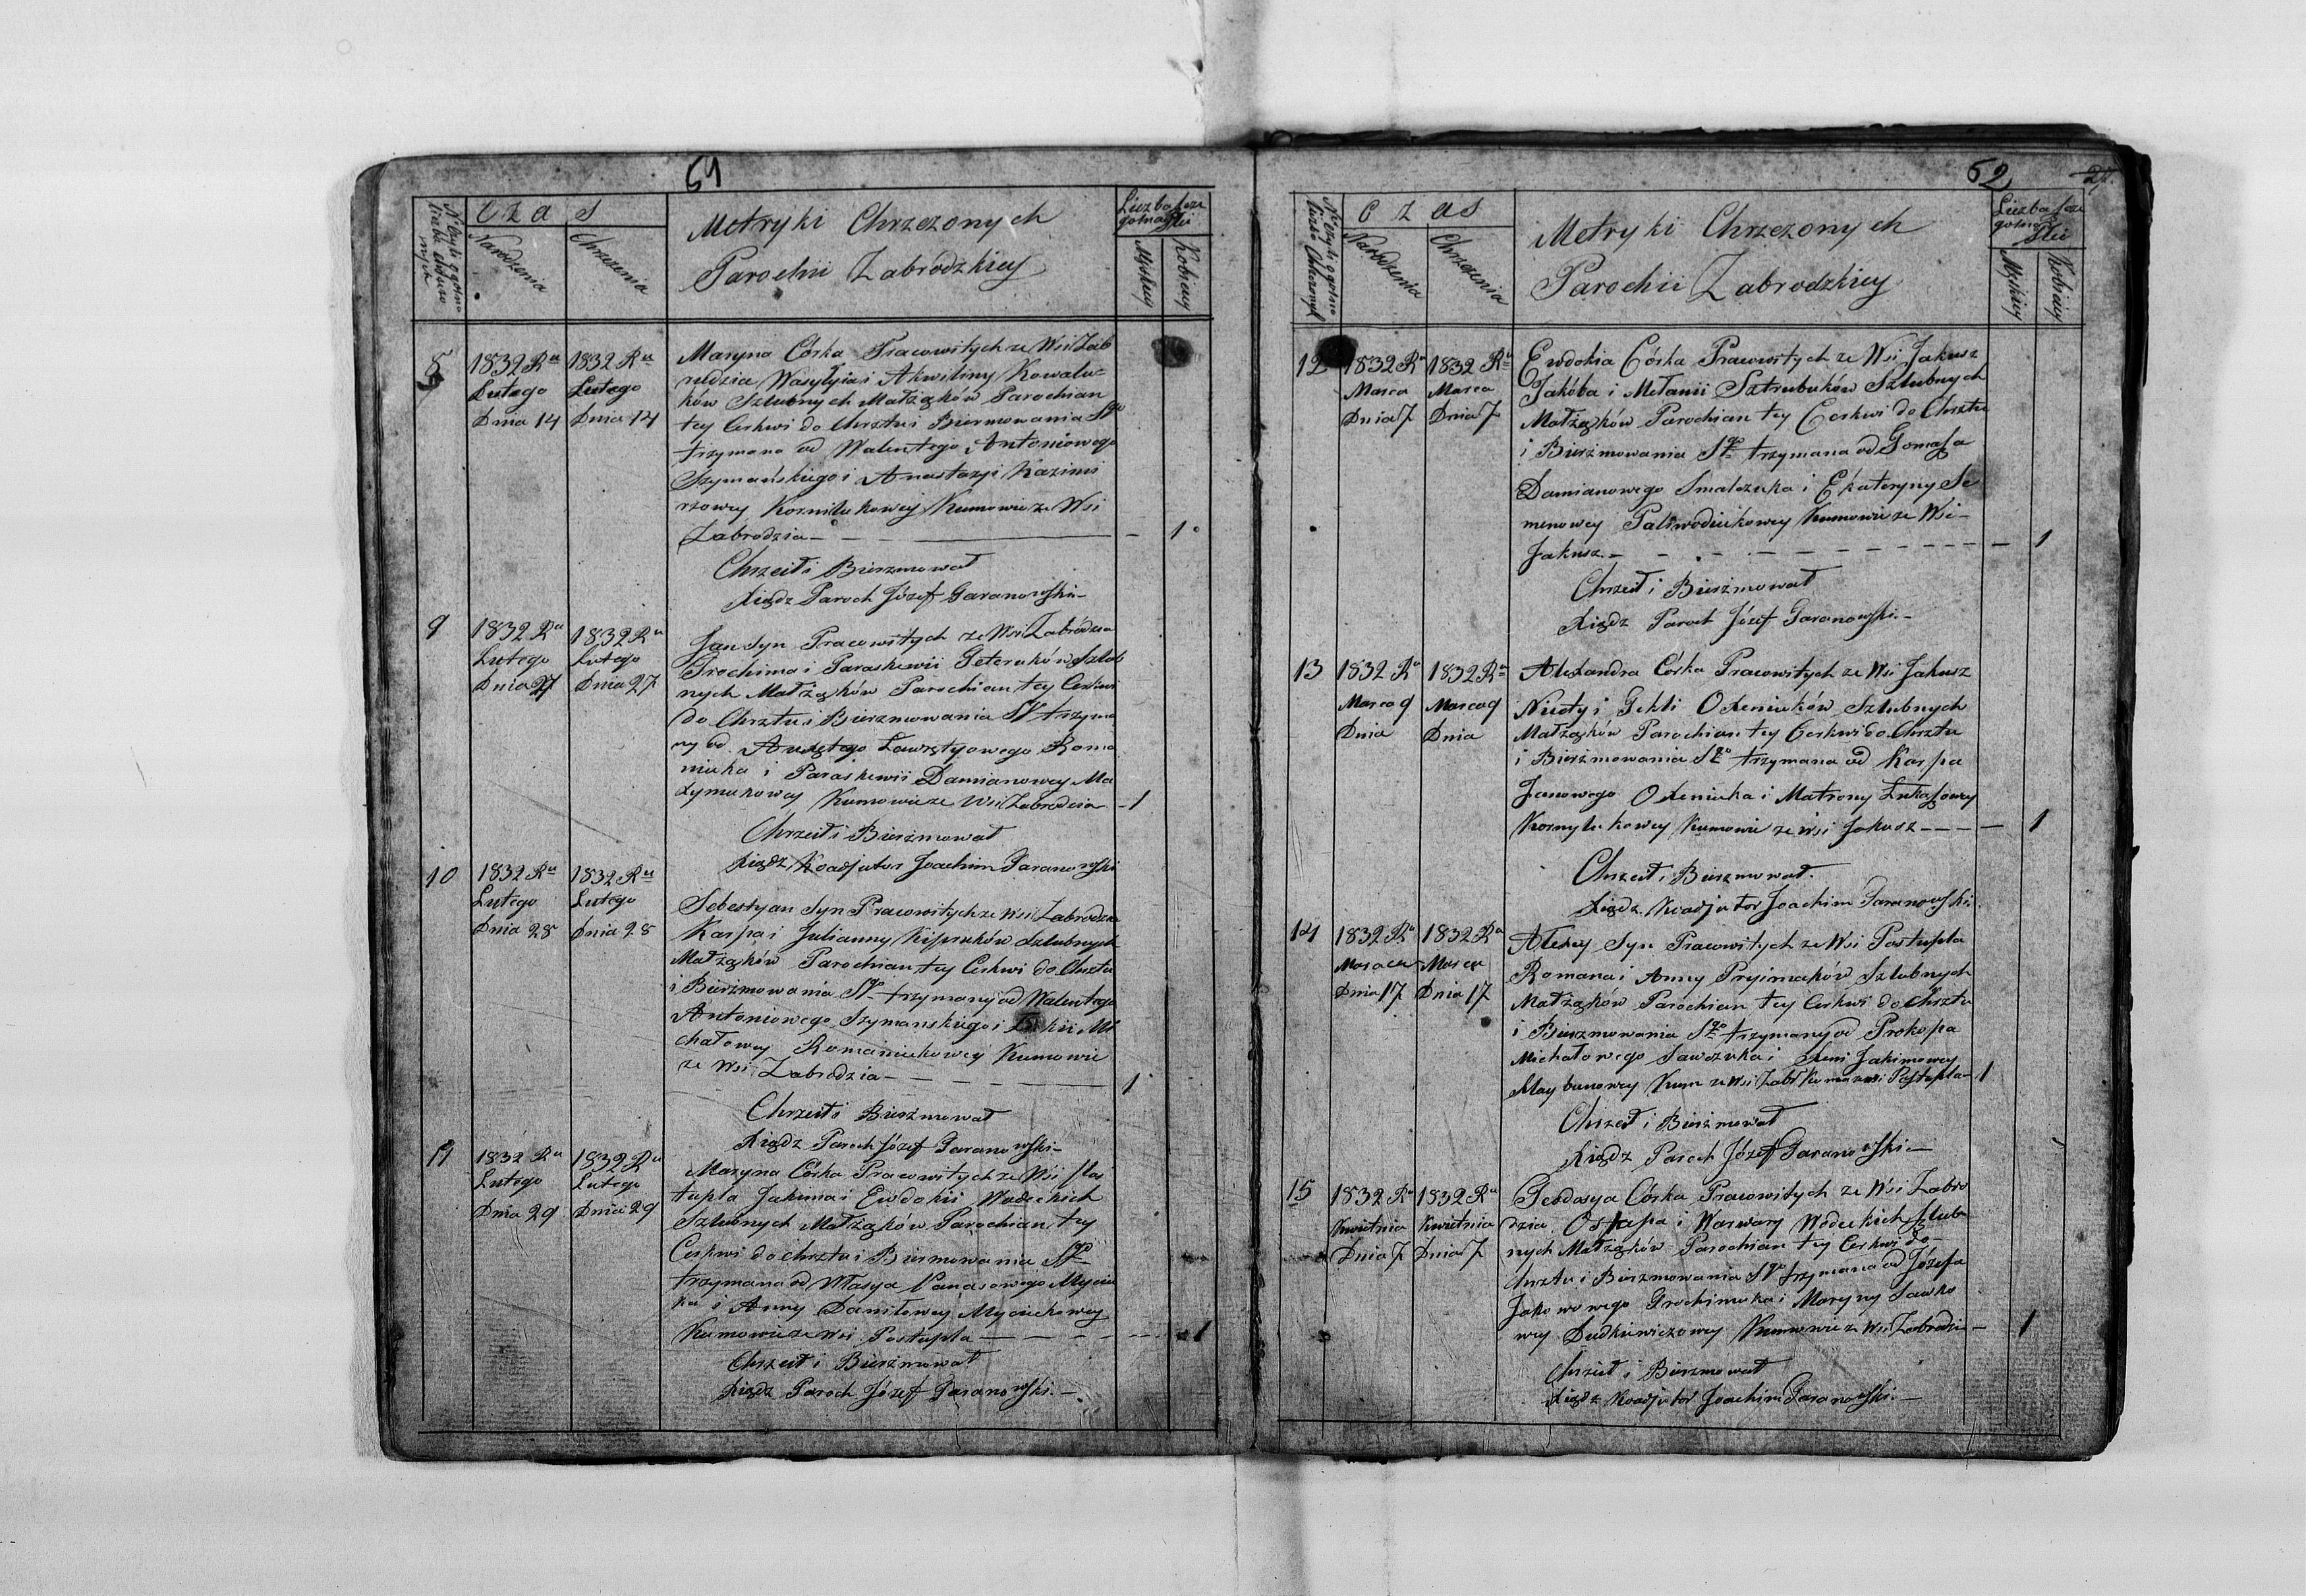 61
C z a s
Metryki Chrzczonych
Parochii Zabrodzkiey
Liczba szcze
golna
Narodzenia
Chrzczenia
Męskiey
Kobiecey
8
1832 Ru
Lutego
Dnia 14
1832 Ru
Lutego
Dnia 14
Maryna Córka Pracowitych ze Wsi Zab
rodzia Wasylija i Akwiliny Kowalu-
ków Szlubnych Małżąków Parochian
tey Cerkwi do Chrztu i Bierzmowania Sgo
trzymana od Walentego Antoniowego
Szymańskiego i Anastazyi Kazimi
rzowey Kornilukowey Kumowie ze Wsi
Zabrodzia - 1
Chrzcił i Bierzmował
Xiądz Paroch Józef Garanowski
9
1832 Ru
Lutego
Dnia 27
1832 Ru
Lutego
Dnia 27
Jan Syn Pracowitych ze Wsi Zabrodzia
Trochima i Paraskewii Seteruków Szlub
nych Małżąków Parochian tey Cerkwi
do Chrztu i Bierzmowania Sgo trzyma
ny od Lawrętyowego Roma
niuka i Paraskewii Damianowey Ma
xymukowey Kumowie ze Wsi Zabrodzia - 1
Chrzcił i Bierzmował
Xiądz Koadjutor Joachim Garanowski
10
1832 Ru
Lutego
Dnia 28
1832 Ru
Lutego
Dnia 28
Sebestyan Syn Pracowitych ze Wsi Zabrodzia
Karpa i Julianny Kipruków Szlubnych
Małżąków Parochian tey Cerkwi do Chrztu
i Bierzmowania Sgo trzymany od Walentego
Antoniowego Szymanskiego i Mi
chałowey Romaniukowey Kumowie
ze Wsi Zabrodzia - 1
Chrzcił i Bierzmował
Xiądz Paroch Józef Garanowski
11
1832 Ru
Lutego
Dnia 29
1832 Ru
Lutego
Dnia 29
Maryna Córka Pracowitych ze Wsi Pos
tupla Jakima i Ewdokii Wodeckich
Szlubnych Małżąków Parochian tey
Cerkwi do Chrztu i Bierzmowania Sgo
trzymana od Własya Panasowego Myciu
ka i Anny Daniłowey Myciukowey
Kumowie ze Wsi Postupla - 1
Chrzcił i Bierzmował
Xiądz Paroch Józef Garanowski.
62
27.
C z a s
Metryki Chrzczonych
Parochii Zabrodzkiey
Liczba szcze
golna
Narodzenia
Chrzczenia
Męskiey
Kobiecey
12
1832 Ru
Marca
Dnia 7
1832 Ru
Marca
Dnia 7
Ewdokia Córka Pracowitych ze Wsi Jakusz
Jakóba i Mełanii Sztrubuków Szlubnych
Małżąków Parochian tey Cerkwi do Chrztu
i Bierzmowania Sgo trzymana od Tomasza
Damianowego Smalczuka i Ekateryny Se
menowey Paliwodiukowey Kumowie ze Wsi
Jakusz - 1
Chrzcił i Bierzmował
Xiądz Paroch Józef Garanowski.
13
1832 Ru
Marca 9
Dnia
1832 Ru
Marca 9
Dnia
Alexandra Córka Pracowitych ze Wsi Jakusz
Nicety i Tekli Oxeniuków Szlubnych
Małżąków Parochian tey Cerkwi do Chrztu
i Bierzmowania Sgo trzymana od Karpa
Janowego Oxeniuka i Matrony Łukaszowey
Kornylukowey Kumowie ze Wsi Jakusz - 1
Chrzcił i Bierzmował.
Xiądz Koadjutor Joachim Garanowski.
14
1832 Ru
Marca
Dnia 17
1832 Ru
Marca
Dnia 17
Alexey Syn Pracowitych ze Wsi Postupla
Romana i Anny Pryimaków Szlubnych
Małżąków Parochian tey Cerkwi do Chrztu
i Bierzmowania Sgo trzymany od Prokopa
Michałowego Sawczuka i Xeni Jakimowey
Maybunowey Kum ze Wsi Zabr Kuma ze Wsi Postupla - 1
Chrzcił i Bierzmował
Xiądz Paroch Józef Garanowski
15
1832 Ru
Kwietnia
Dnia 7
1832 Ru
Kwietnia
Dnia 7
Teodosya Córka Pracowitych ze Wsi Zabro
dzia Ostapa i Warwary Wodeckich Szlub
nych Małżąków Parochian tey Cerkwi do
Chrztu i Bierzmowania Sgo trzymana od Józefa
Jakowowego Trochimuka i Maryny Sawko
wey Dudkiewiczowey Kumowie ze Wsi Zabrodzia - 1
Chrzcił i Bierzmował
Xiądz Koadjutor Joachim Garanowski.